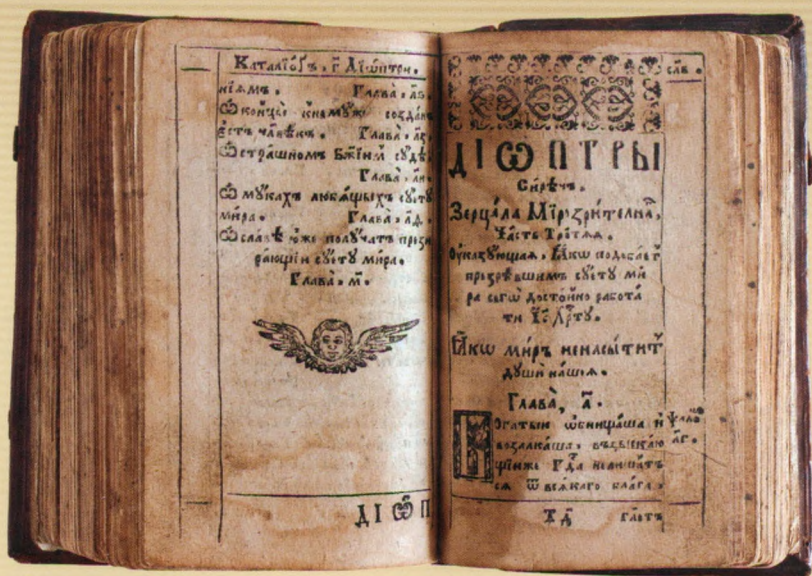 Каталіогъ, г҃ Діѡптри.
ніямъ. Глава̀,
Ѡ концы̀ кнемуже созданъ
Естъ чл҃вѣкъ. Глава̀,
Ѡ страшномъ Бж҃іемъ судѣ
Глава̀,
Ѡ мукахъ любящыхъ суету
мира. Глава̀,
Ѡ славѣ юже получатъ презирающіи суету мира.
Глава̀, м҃.
ДІѠП
ДІѠПТРЫ
Сирѣчъ.
Зерцала Мірозрителна,
Часть Третяя.
Оуказующая, Ꙗкѡ подобаетъ
презрѣвшимъ суету ми
ра сегѡ достойно работа
ти Х҃у.
Ꙗкѡ миръ ненасытитъ
души нашея.
Глава̀, а҃.
Богатыи ѡбнищаша и
взалкаша, взыскаю
щіиже Гд҃а нелишатъ
ся ѿ всякаго блага,